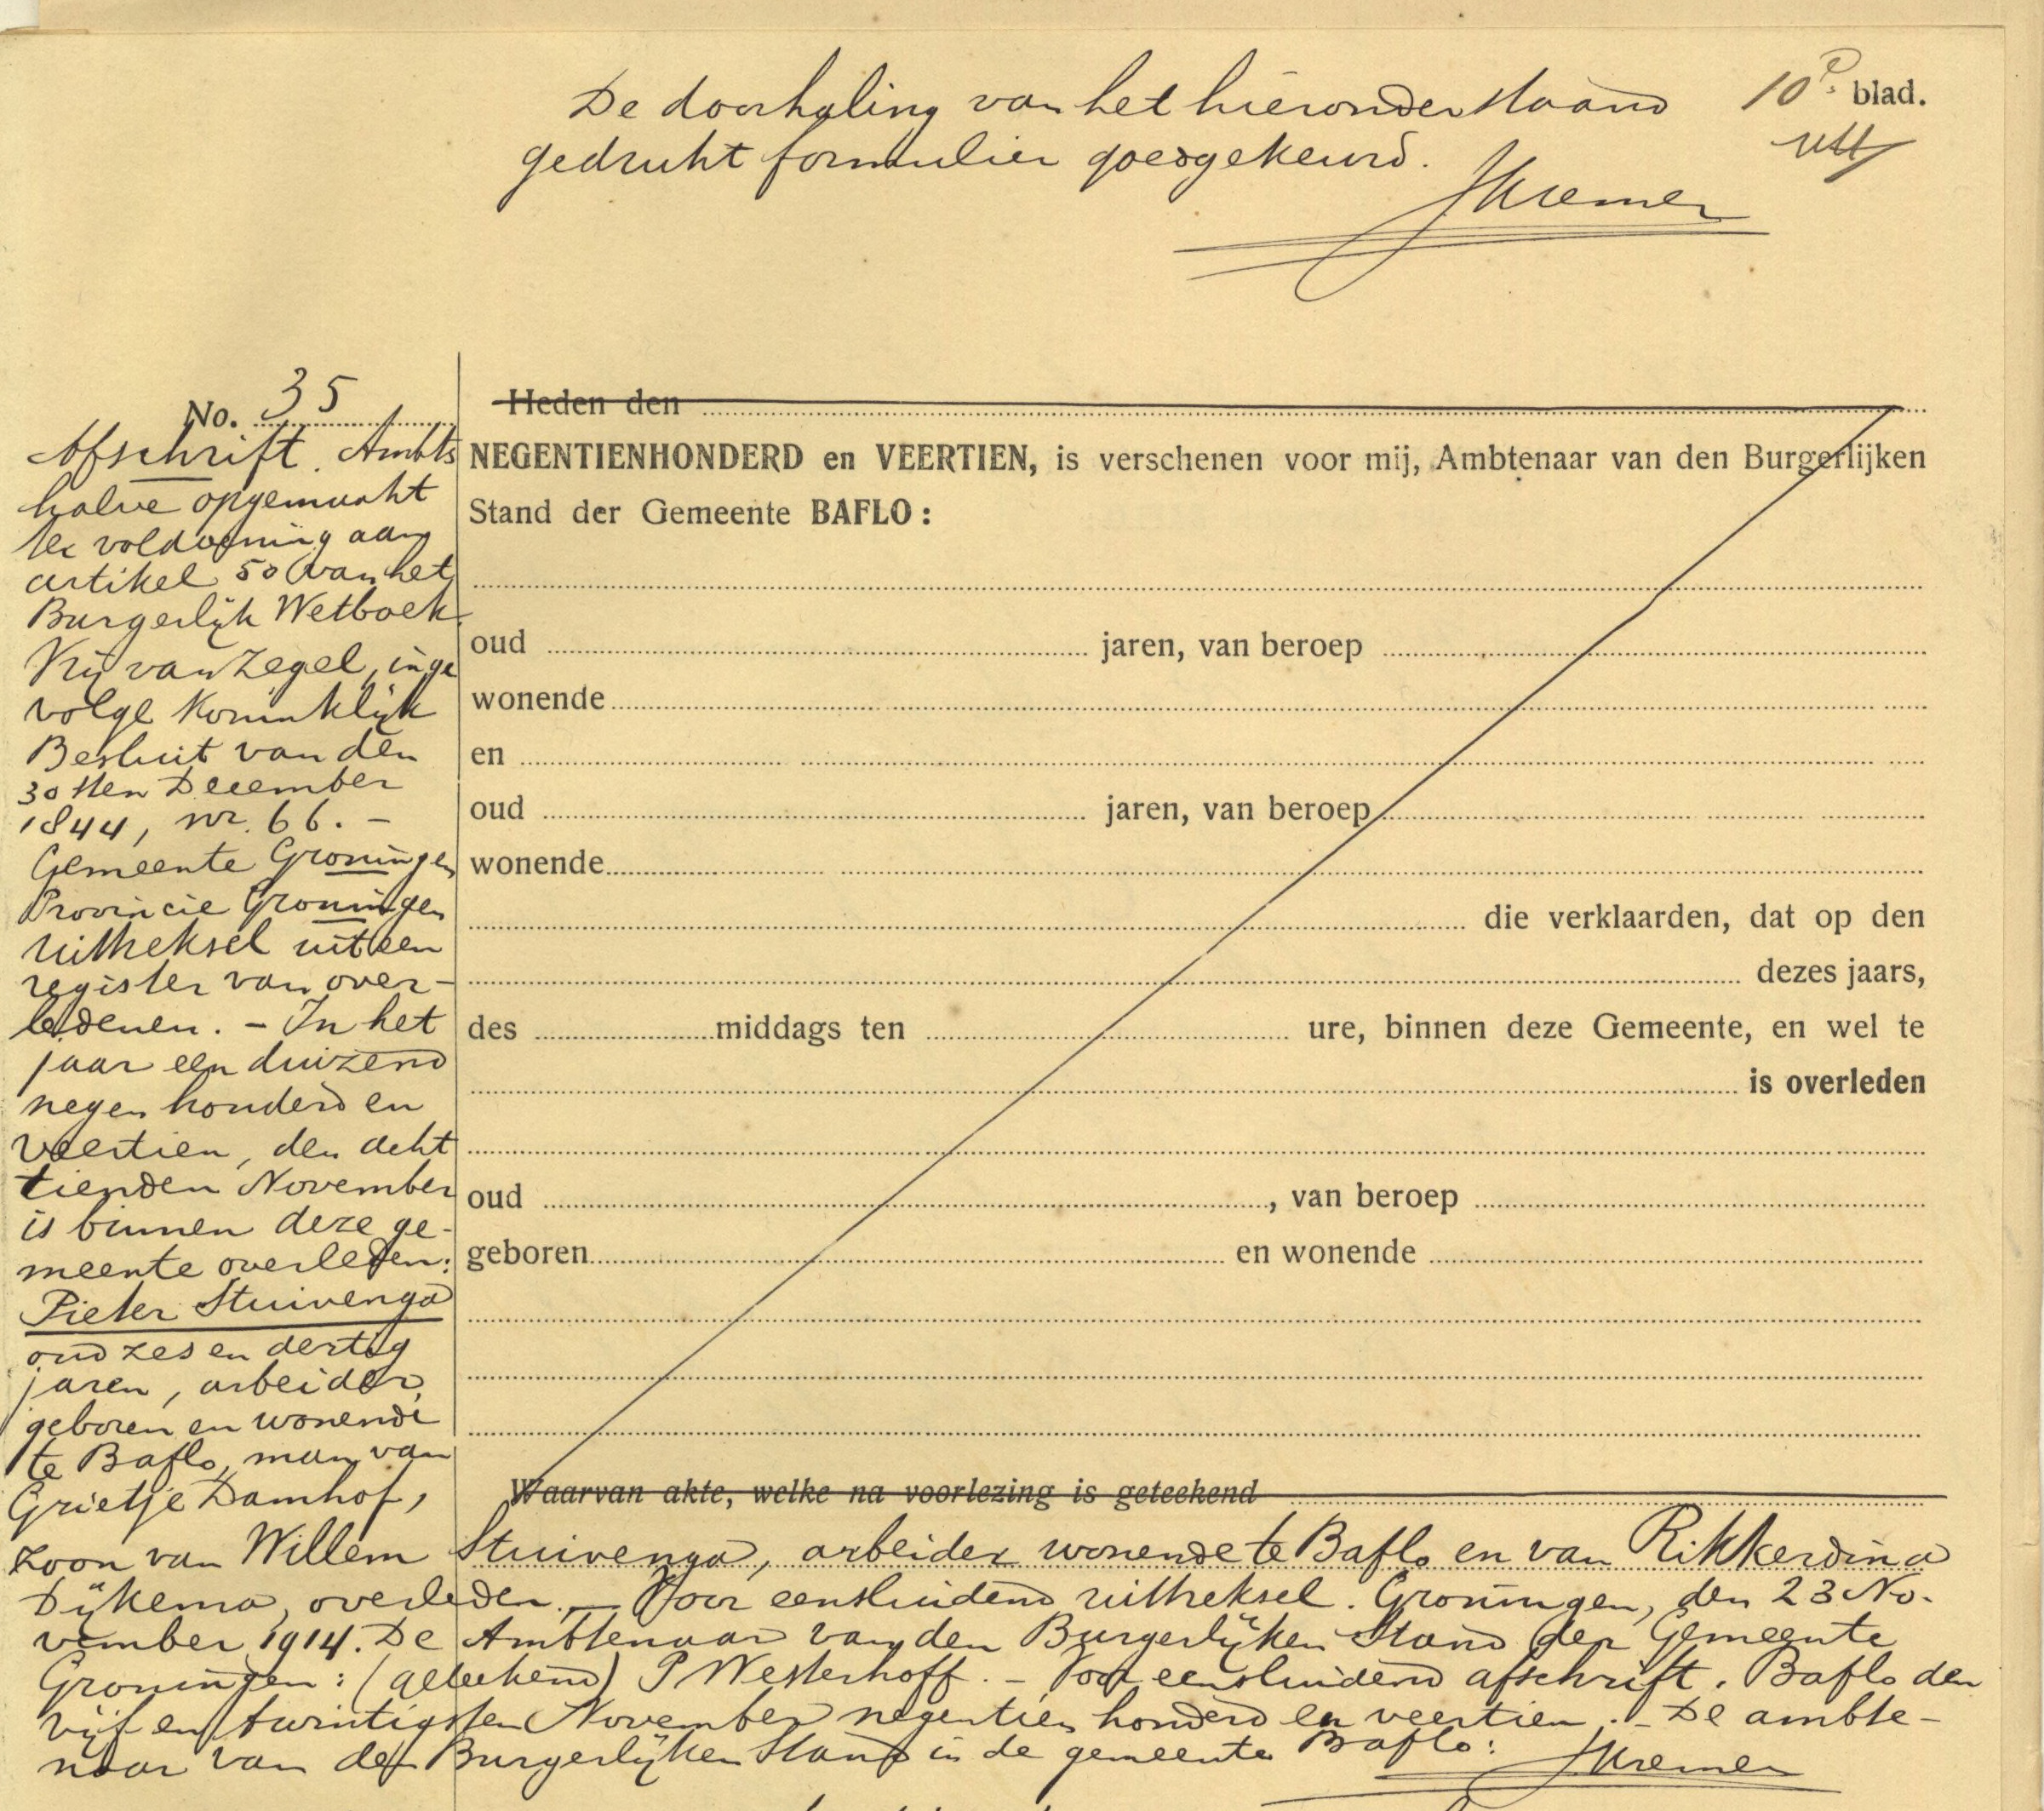 De doorhaling van het hieronderstaand
gedrukt formulier goedgekeurd.
10e blad.
JKremer
No. 35
Afschrift. Ambts
halve opgemaakt
ter voldoening aan
artikel 50 van het
Burgerlijk Wetboek
Vrij van Zegel, inge
volge Koninklijk
Besluit van den
30sten December
1844, nr. 66. -
Gemeente Groningen
Provincie Groningen
Uittreksel uit een
register van over-
ledenen. - In het
jaar een duizend
negen honderd en
veertien, den acht
tienden November
is binnen deze ge-
meente overleden:
Pieter Stuivenga
oud zes en dertig
jaren, arbeider,
geboren en wonende
te Baflo, man van
Grietje Damhof,
Heden den
NEGENTIENHONDERD en VEERTIEN, is verschenen voor mij, Ambtenaar van den Burgerlijken
Stand der Gemeente BAFLO:
oud jaren, van beroep
wonende
en
oud jaren, van beroep
wonende
die verklaarden, dat op den
dezes jaars,
des middags ten ure, binnen deze Gemeente, en wel te
is overleden
oud , van beroep
geboren en wonende
Waarvan akte, welke na voorlezing is geteekend
zoon van Willem Stuivenga, arbeider wonende te Baflo en van Rikkerdina
Dijkema, overleden. - Voor eensluidend uittreksel. Groningen, den 23 No-
vember 1914. De Ambtenaar van den Burgerlijken Stand der Gemeente
Groningen: (geteekend) P Westerhoff. - Voor eensluidend afschrift. Baflo den
vijf en twintigsten November negentien honderd en veertien. - De ambte-
naar van den Burgerlijken Stand in de gemeente Baflo: JKremer